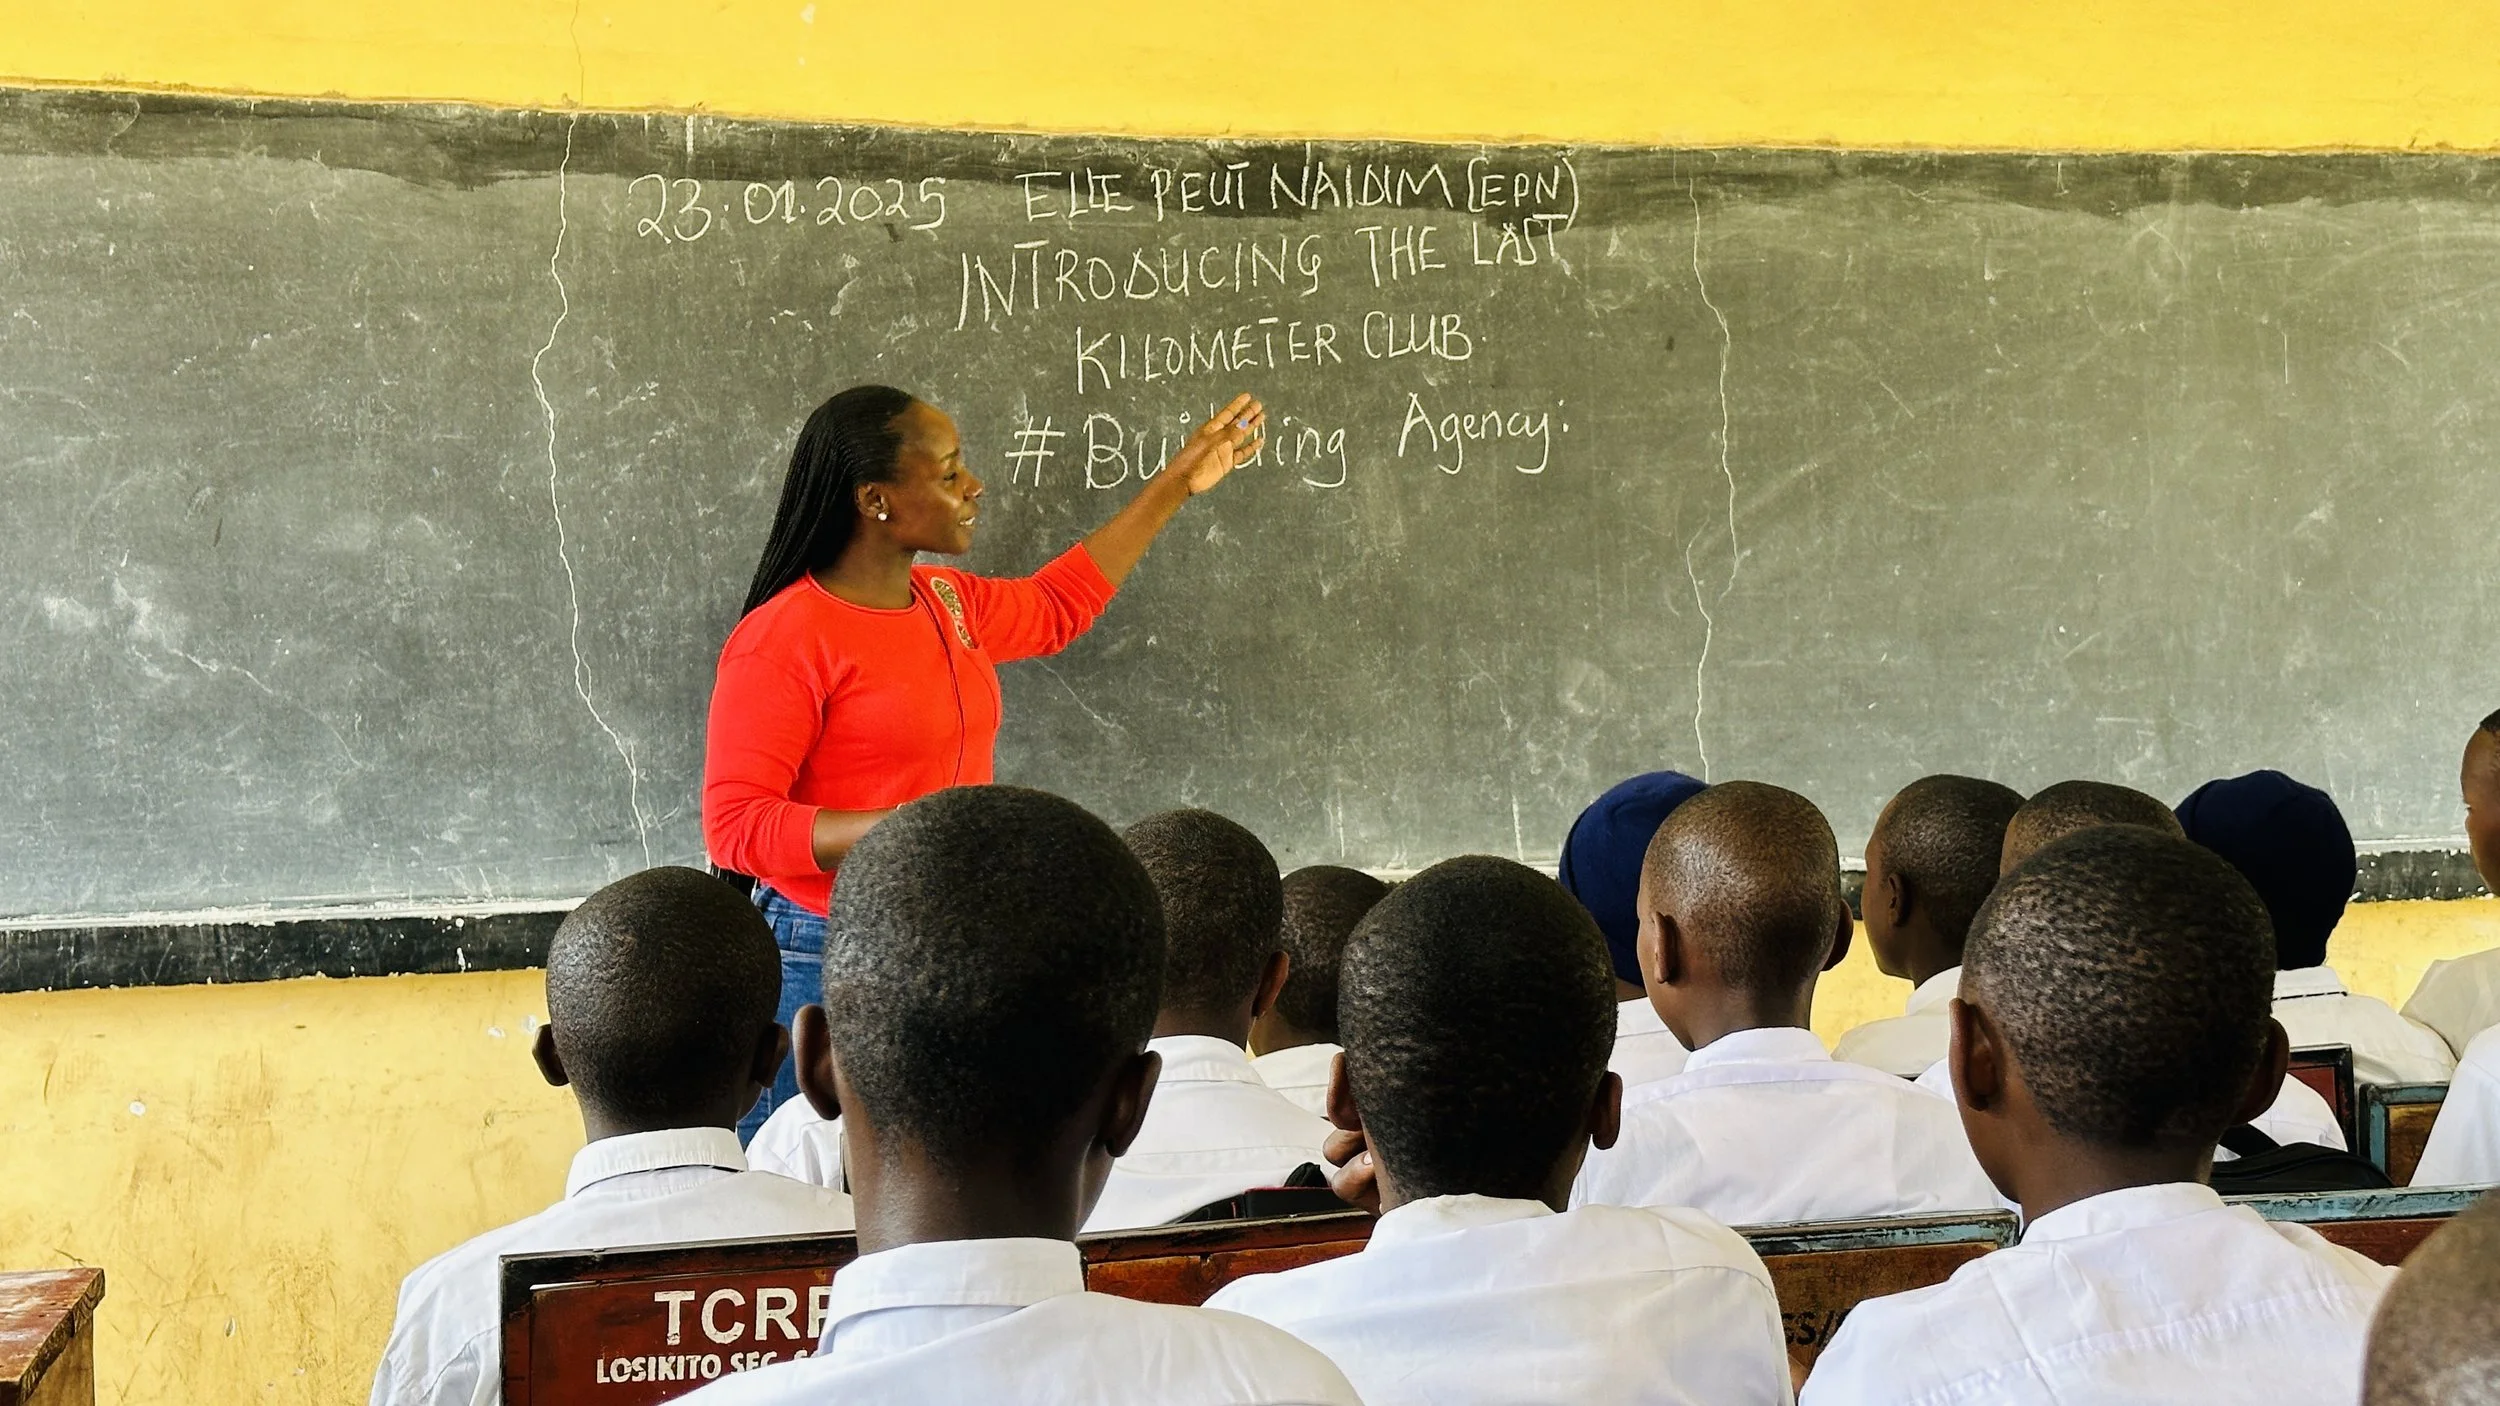 23.01.2025 ELLE PEUT NAIDIM (EPN)
INTRODUCING THE LAST
KILOMETER CLUB.
# Building Agency.
TCRF
LOSIKITO SEC.